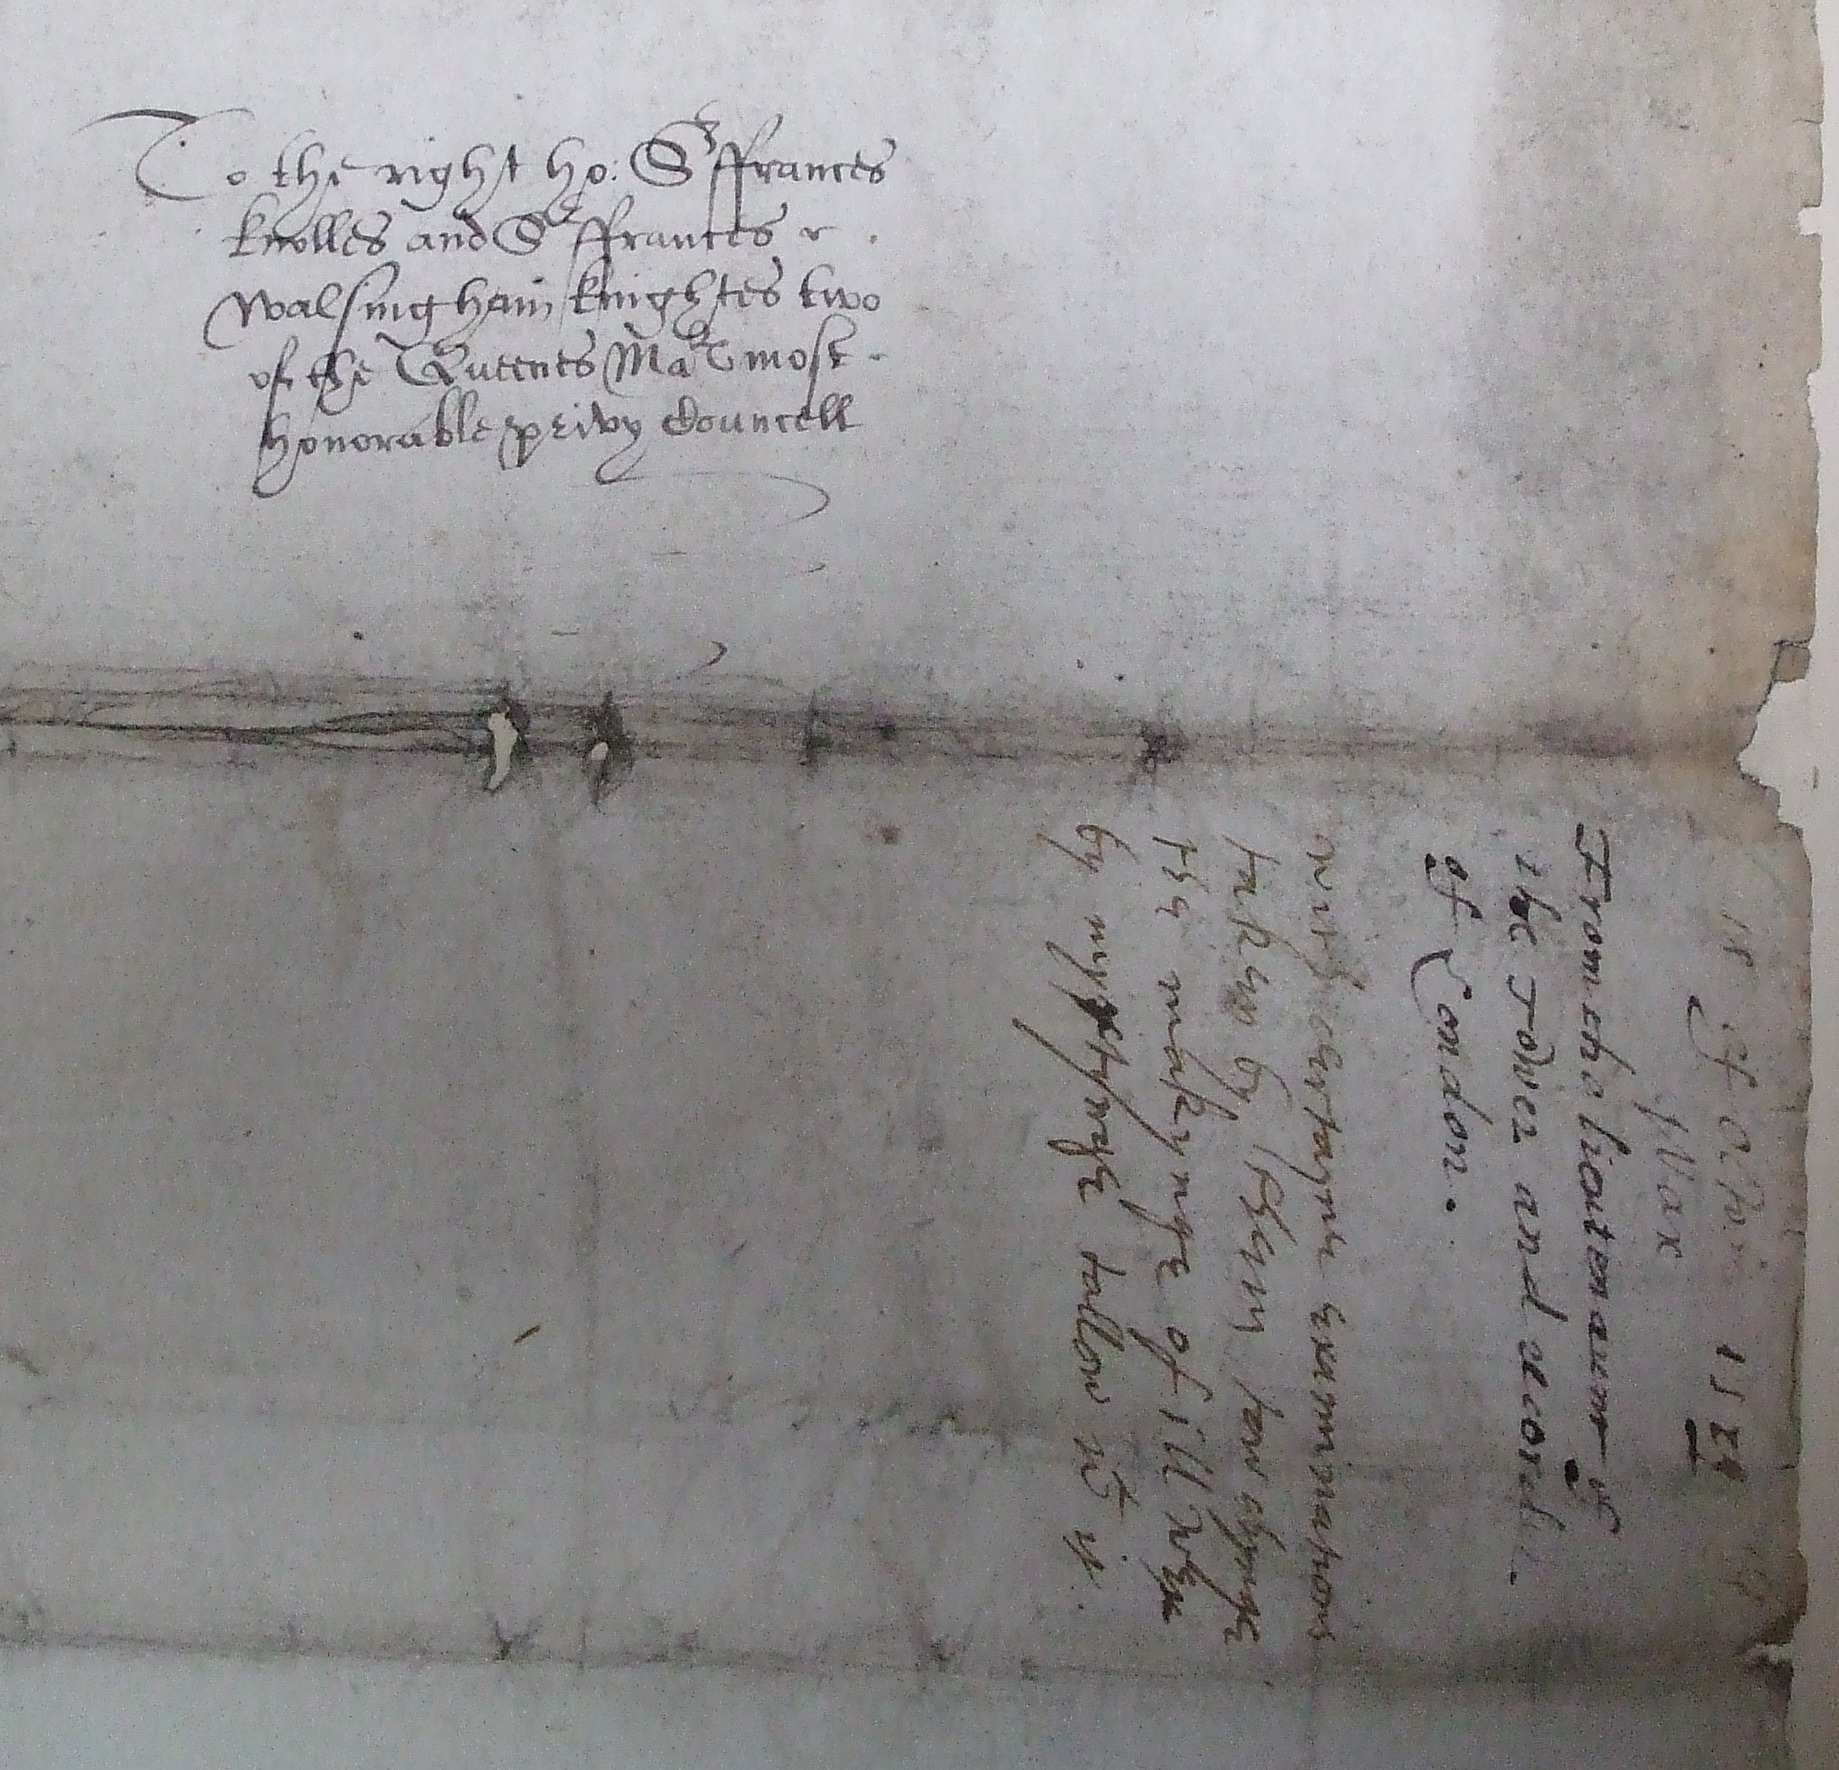 To the right ho: Sr ffrances
knolles and Sr ffrances
walsingham knightes two
of the Queenes Matᵉ most
honorable privy Councell
18 of 1584
Wax
From the lieutenaunt of
the Tower and record
of London.
with certayne examinations
taken by them towchinge
the makynge of ill wex
by myxtynge tallow wt it.